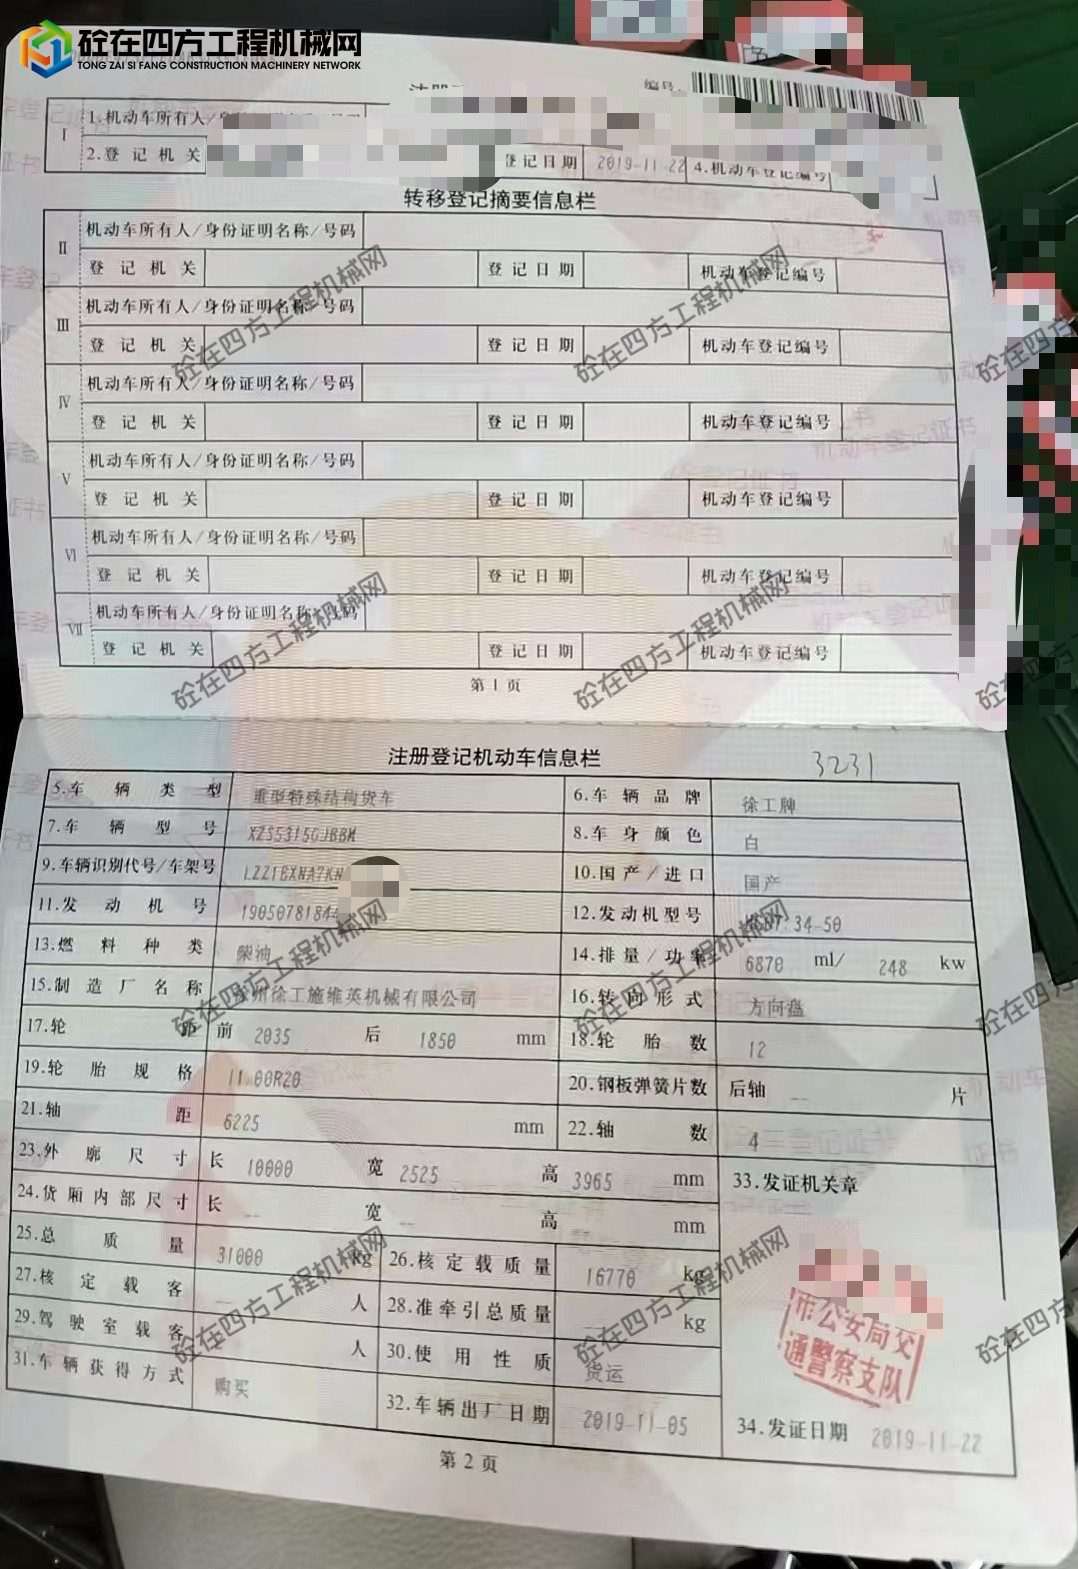 砼在四方工程机械网
TONG ZAI SI FANG CONSTRUCTION MACHINERY NETWORK
编号:
I 1.机动车所有人/身
2.登记机关 登记日期 2019-11-22 4.机动车登记编号
转移登记摘要信息栏
II 机动车所有人/身份证明名称/号码
登记机关 登记日期 机动车登记编号
III 机动车所有人/身份证明名称/号码
登记机关 登记日期 机动车登记编号
IV 机动车所有人/身份证明名称/号码
登记机关 登记日期 机动车登记编号
V 机动车所有人/身份证明名称/号码
登记机关 登记日期 机动车登记编号
VI 机动车所有人/身份证明名称/号码
登记机关 登记日期 机动车登记编号
VII 机动车所有人/身份证明名称/号码
登记机关 登记日期 机动车登记编号
第1页
注册登记机动车信息栏 3231
5.车辆类型 重型特殊结构货车 6.车辆品牌 徐工牌
7.车辆型号 XZS5315GJBBM 8.车身颜色 白
9.车辆识别代号/车架号 10.国产/进口 国产
11.发动机号 1905078184 12.发动机型号 07.34-50
13.燃料种类 柴油 14.排量/功率 6870 ml/ 248 kw
15.制造厂名称 州徐工施维英机械有限公司 16.转向形式 方向盘
17.轮距 前 2035 后 1850 mm 18.轮胎数 12
19.轮胎规格 11.00R20 20.钢板弹簧片数 后轴 -- 片
21.轴距 6225 mm 22.轴数 4
23.外廓尺寸 长 10000 宽 2525 高 3965 mm 33.发证机关章
24.货厢内部尺寸 长 -- 宽 -- 高 mm
25.总质量 31000 kg 26.核定载质量 16770 kg
27.核定载客 -- 人 28.准牵引总质量 -- kg
29.驾驶室载客 人 30.使用性质 货运
市公安局交
通警察支队
31.车辆获得方式 购买 32.车辆出厂日期 2019-11-05 34.发证日期 2019-11-22
第2页
砼在四方工程机械网
砼在四方工程机械网
砼在四方工程机械网
砼在四方工程机械网
砼在四方工程机械网
砼在四方工程机械网
砼在四方工程机械网
砼在四方工程机械网